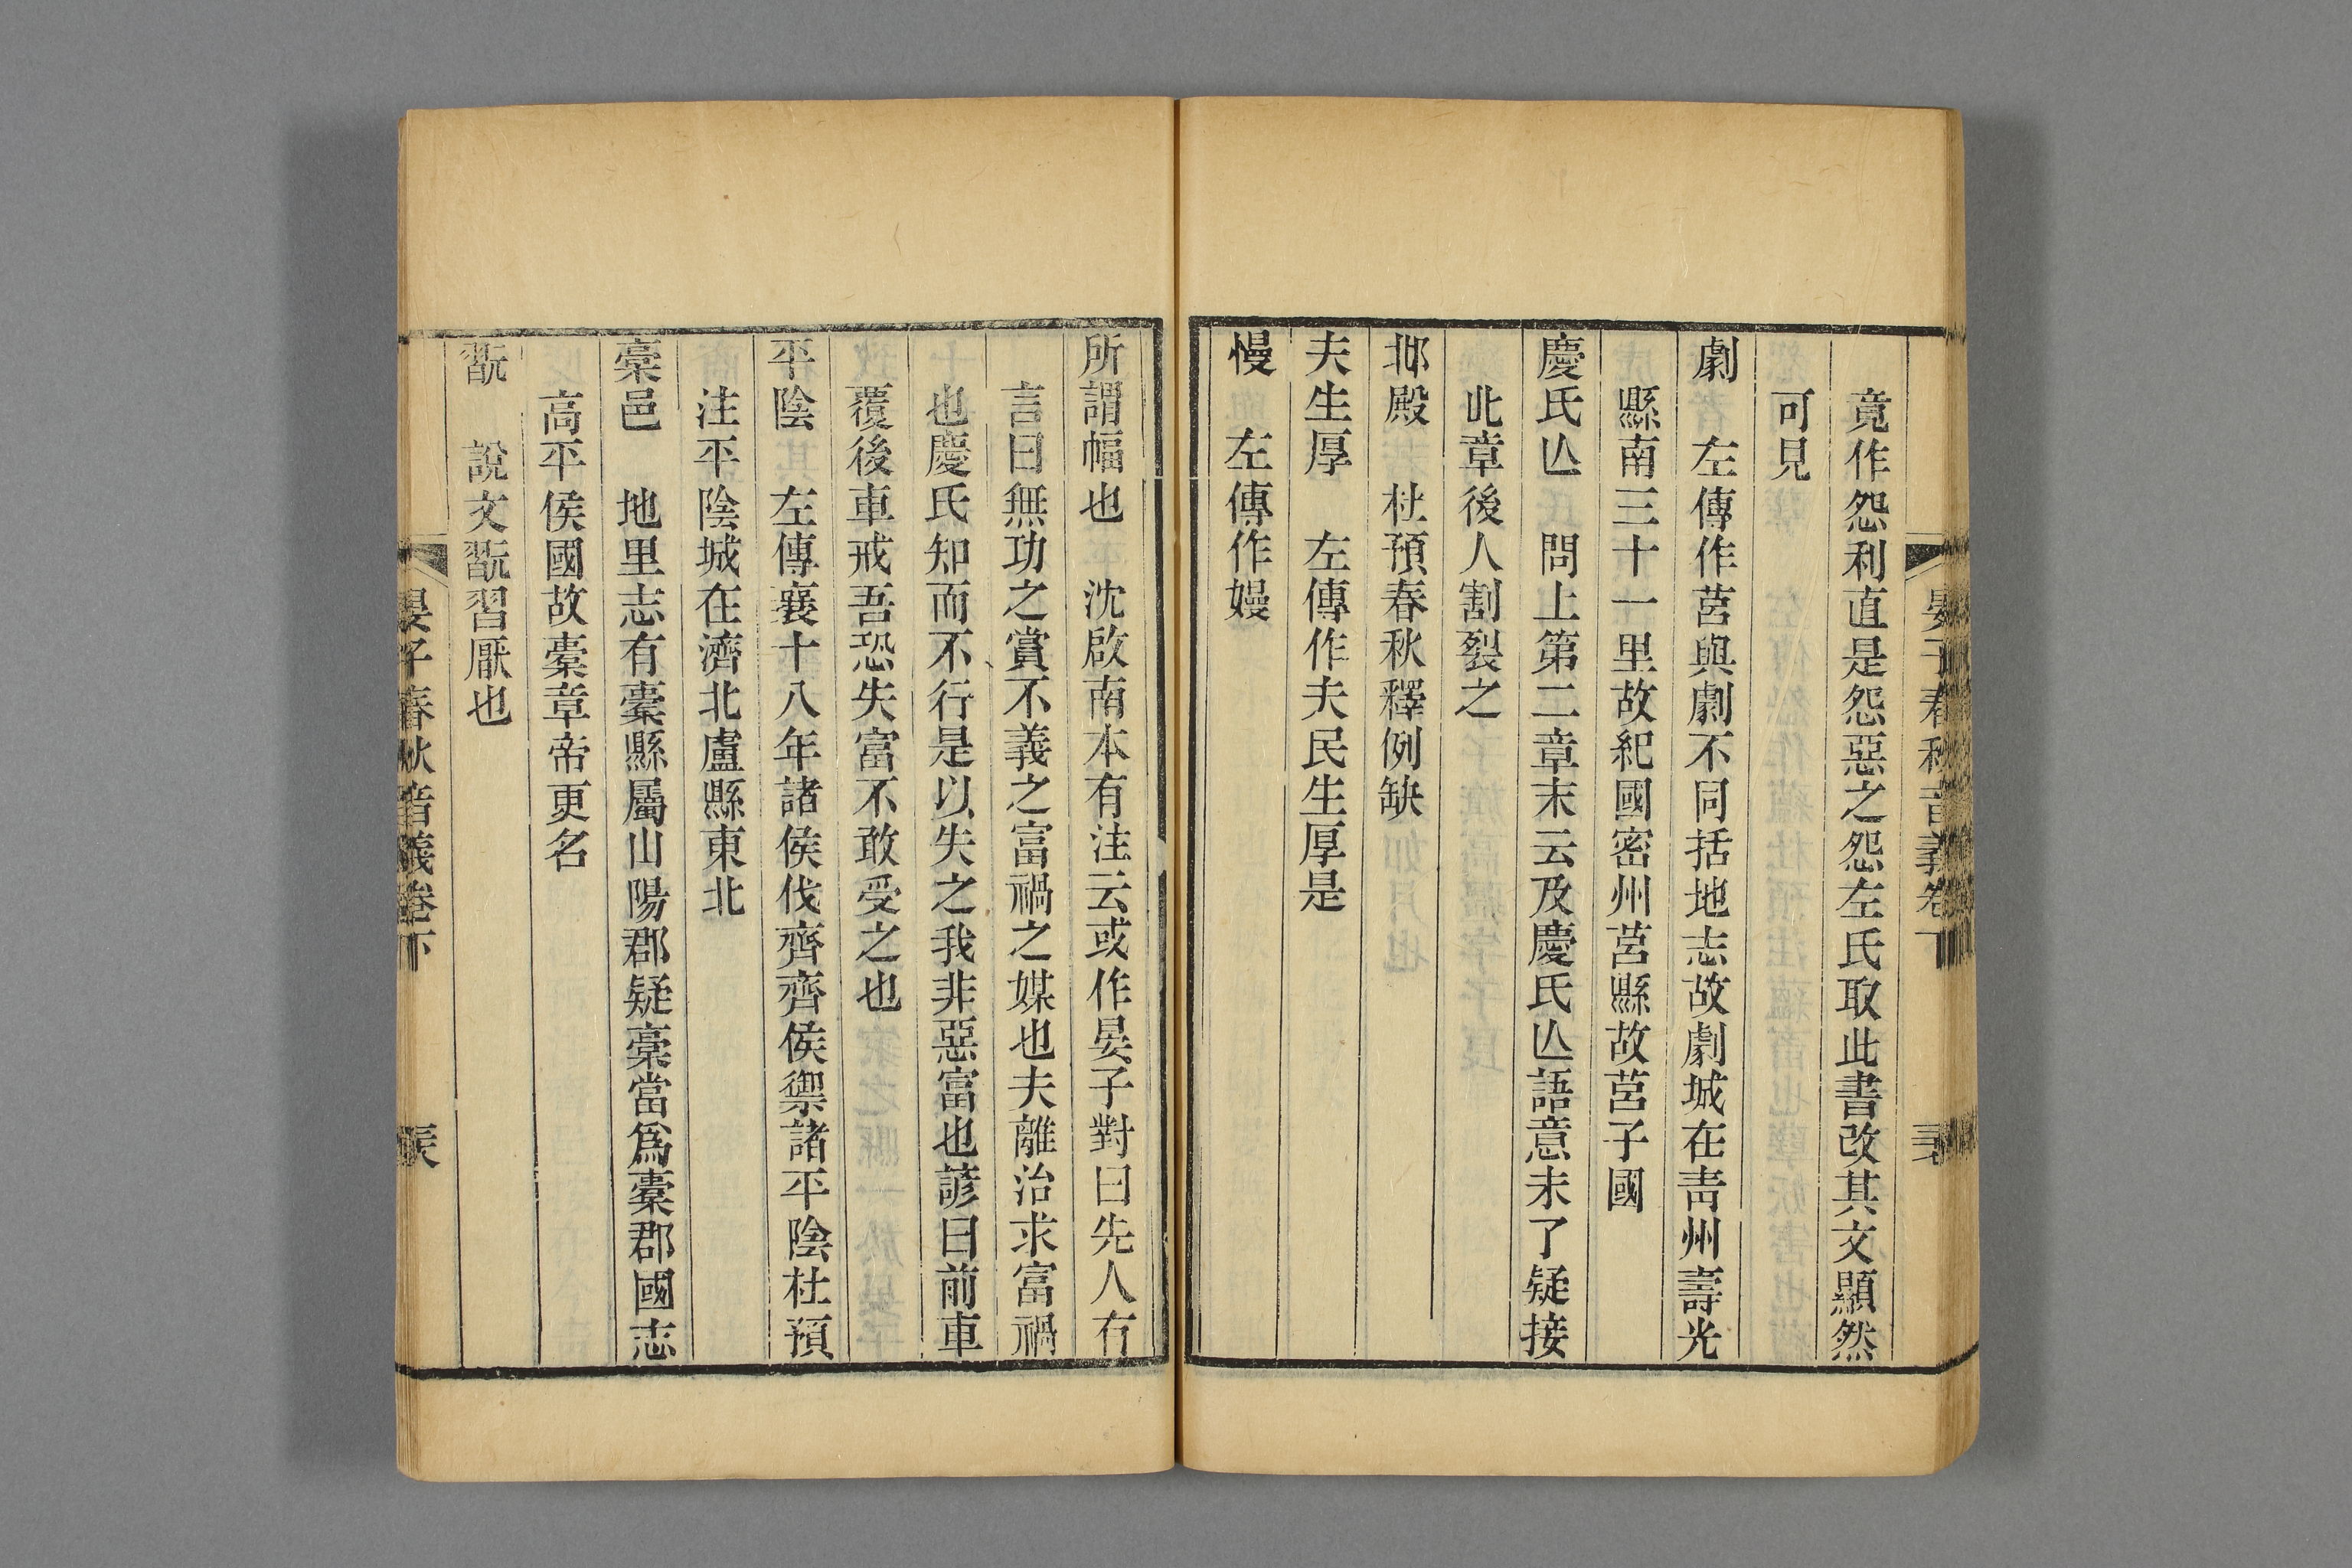 晏子春秋音義卷下
竟作怨利直是怨惡之怨左氏取此書改其文顯然
可見
劇　左傳作莒與劇不同括地志故劇城在青州壽光
縣南三十一里故紀國密州莒縣故莒子國
慶氏亾　問上第二章末云及慶氏亾語意未了疑接
此章後人割裂之
邶殿　杜預春秋釋例缺
夫生厚　左傳作夫民生厚是
慢　左傳作嫚
所謂幅也　沈啟南本有注云或作晏子對曰先人有
言曰無功之賞不義之富禍之媒也夫離治求富禍
也慶氏知而不行是以失之我非惡富也諺曰前車
覆後車戒吾恐失富不敢受之也
平陰　左傳襄十八年諸侯伐齊齊侯禦諸平陰杜預
注平陰城在濟北盧縣東北
棗邑　地里志有橐縣屬山陽郡疑棗當爲橐郡國志
高平侯國故橐章帝更名
翫　說文翫習厭也
晏子春秋音義卷下